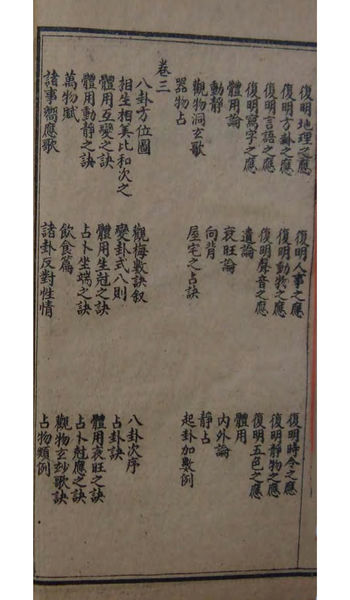 復明地理之應 復明人事之應 復明時令之應
復明方卦之應 復明動物之應 復明靜物之應
復明言語之應 復明聲音之應 復明五色之應
復明寫字之應 遺論 體用
體用論 衰旺論 內外論
動靜 向背 靜占
觀物洞玄歌 屋宅之占訣 起卦加數例
器物占
卷三
八卦方位圖 觀梅數訣叙 八卦次序
相生相尅比和次之 變卦式八則 占卦訣
體用互變之訣 體用生尅之訣 體用衰旺之訣
體用動靜之訣 占卜坐端之訣 占卜尅應之訣
萬物賦 飲食篇 觀物玄玅歌訣
諸事響應歌 諸卦反對性情 占物類例